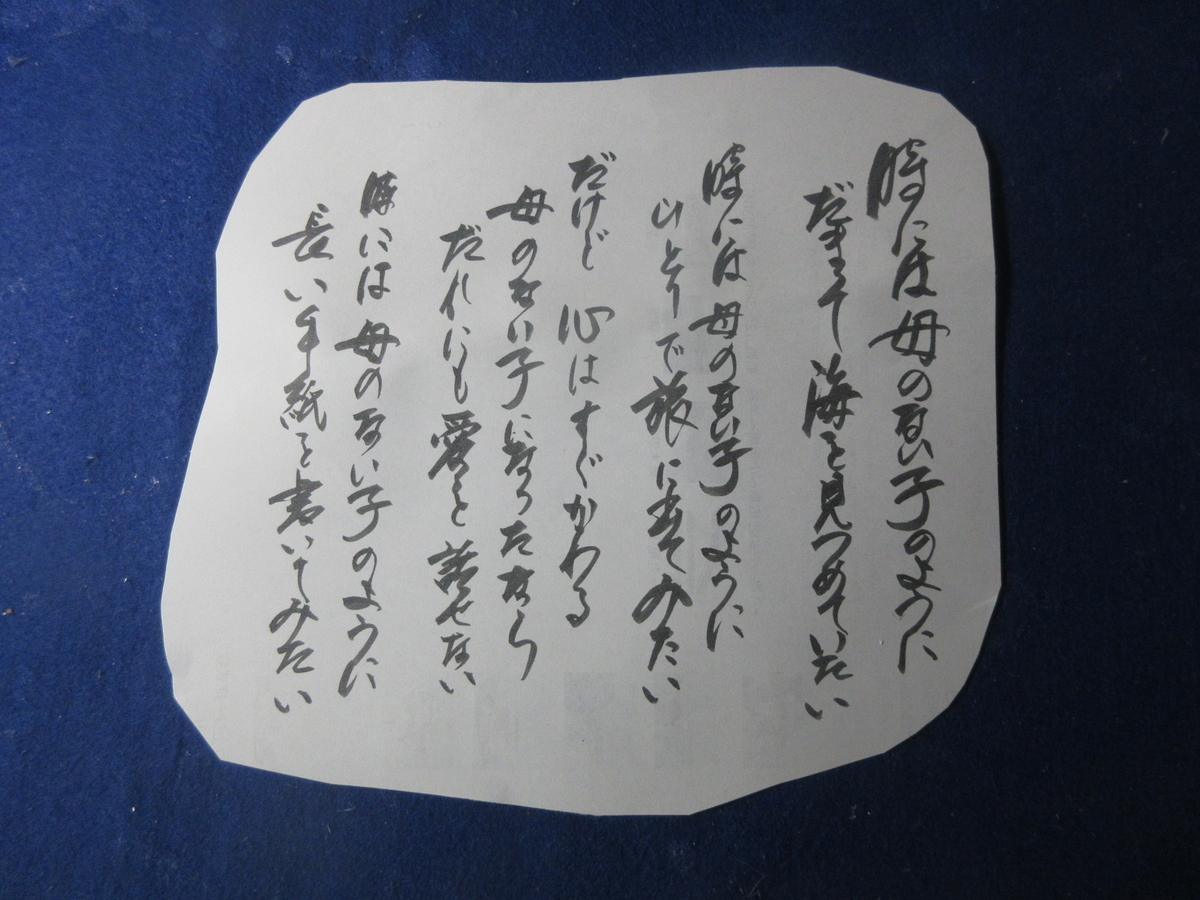 時には母のない子のように
だまって海を見つめていたい
時には母のない子のように
ひとりで旅に出てみたい
だけど 心はすぐかわる
母のない子になったなら
だれにも愛を話せない
時には母のない子のように
長い手紙を書いてみたい